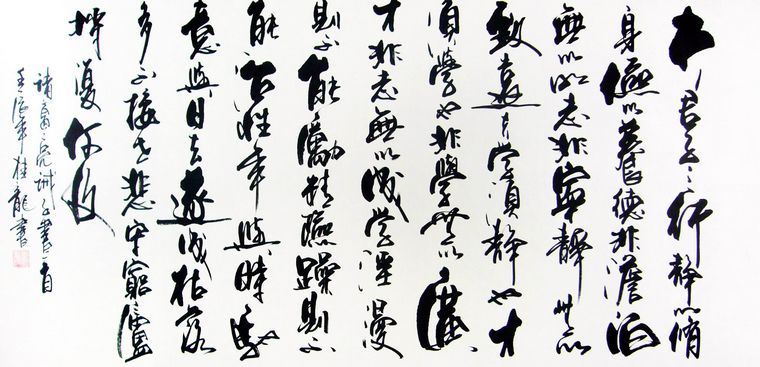 夫君子之行靜以脩
身儉以養德非澹泊
無以明志非寧靜無以
致遠夫學須靜也才
須學也非學無以廣
才非志無以成學淫漫
則不能勵精險躁則不
能治性年與時馳
意與日去遂成枯落
多不接世悲守窮廬
將復何及
諸葛亮誡子書一首
壬辰年桂龍書